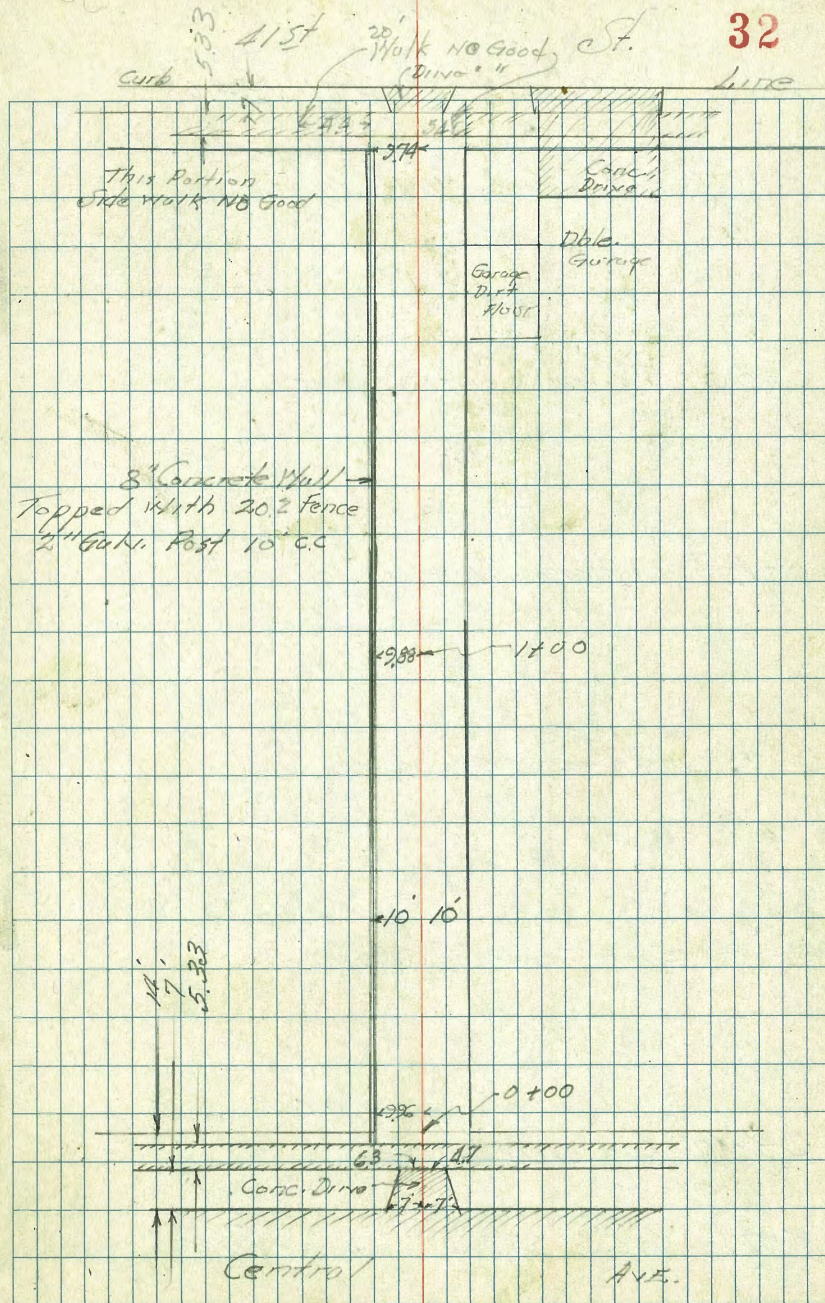 32
41st St.
20'
Walk No Good
Drive " "
5.33
7'
Curb Line
5.4
9.74
This Portion
Side Walk No Good
Conc.
Drive
Dble.
Garage
Garage
Dirt
Floor
8" Concrete Wall
Topped With 20.2 Fence
2" Galv. Post 10' C.C
9.88
1+00
10' 10'
14'
7'
5.33
9.96
0+00
6.3 4.7
Conc. Drive
7' 7'
Central Ave.